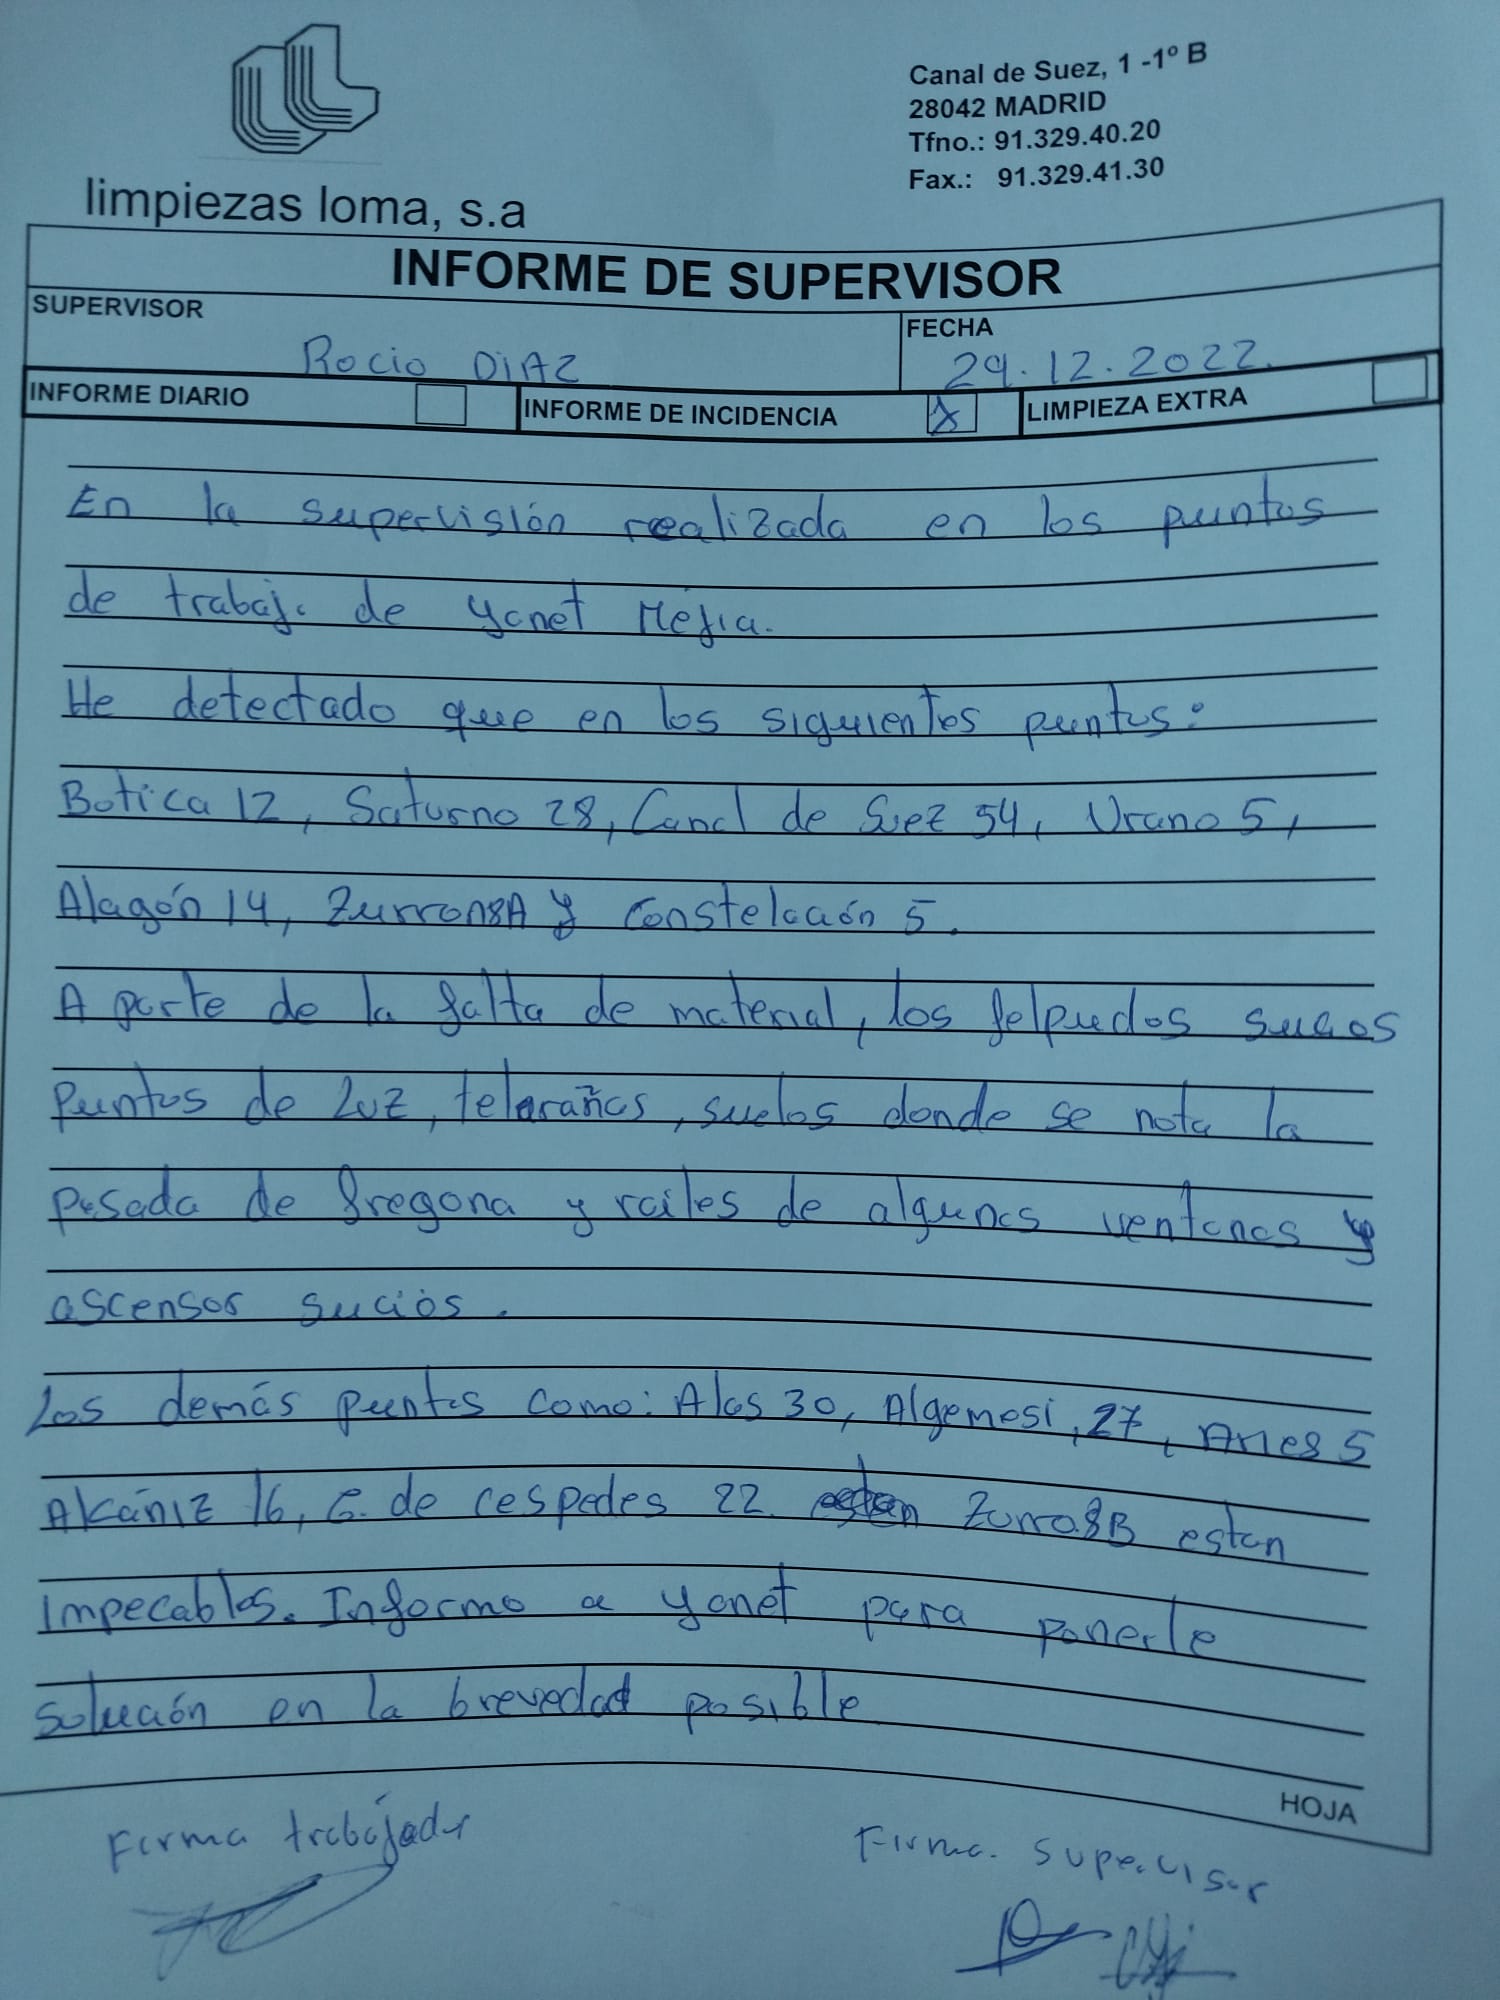 Canal de Suez, 1 -1º B
28042 MADRID
Tfno.: 91.329.40.20
Fax.: 91.329.41.30
limpiezas loma, s.a
INFORME DE SUPERVISOR
SUPERVISOR
Rocio DIAZ
FECHA
29.12.2022.
INFORME DIARIO
INFORME DE INCIDENCIA X
LIMPIEZA EXTRA
En la supervisión realizada en los puntos
de trabajo de Yanet Mejia.
He detectado que en los siguientes puntos:
Botica 12, Saturno 28, Canal de Suez 54, Urano 5,
Alagón 14, Zurron8A y Constelación 5.
A parte de la falta de material, los felpudos sucios
puntos de luz, telarañas, suelos donde se nota la
pasada de fregona y railes de algunas ventanas y
ascensor sucios.
Los demás puntos como: Alas 30, Algemesi, 27, Aries 5
Alcániz 16, G. de cespedes 22 Zurro.8B estan
impecables. Informo a Yanet para ponerle
solución en la brevedad posible
HOJA
Firma trabajador
Firma. Supervisor